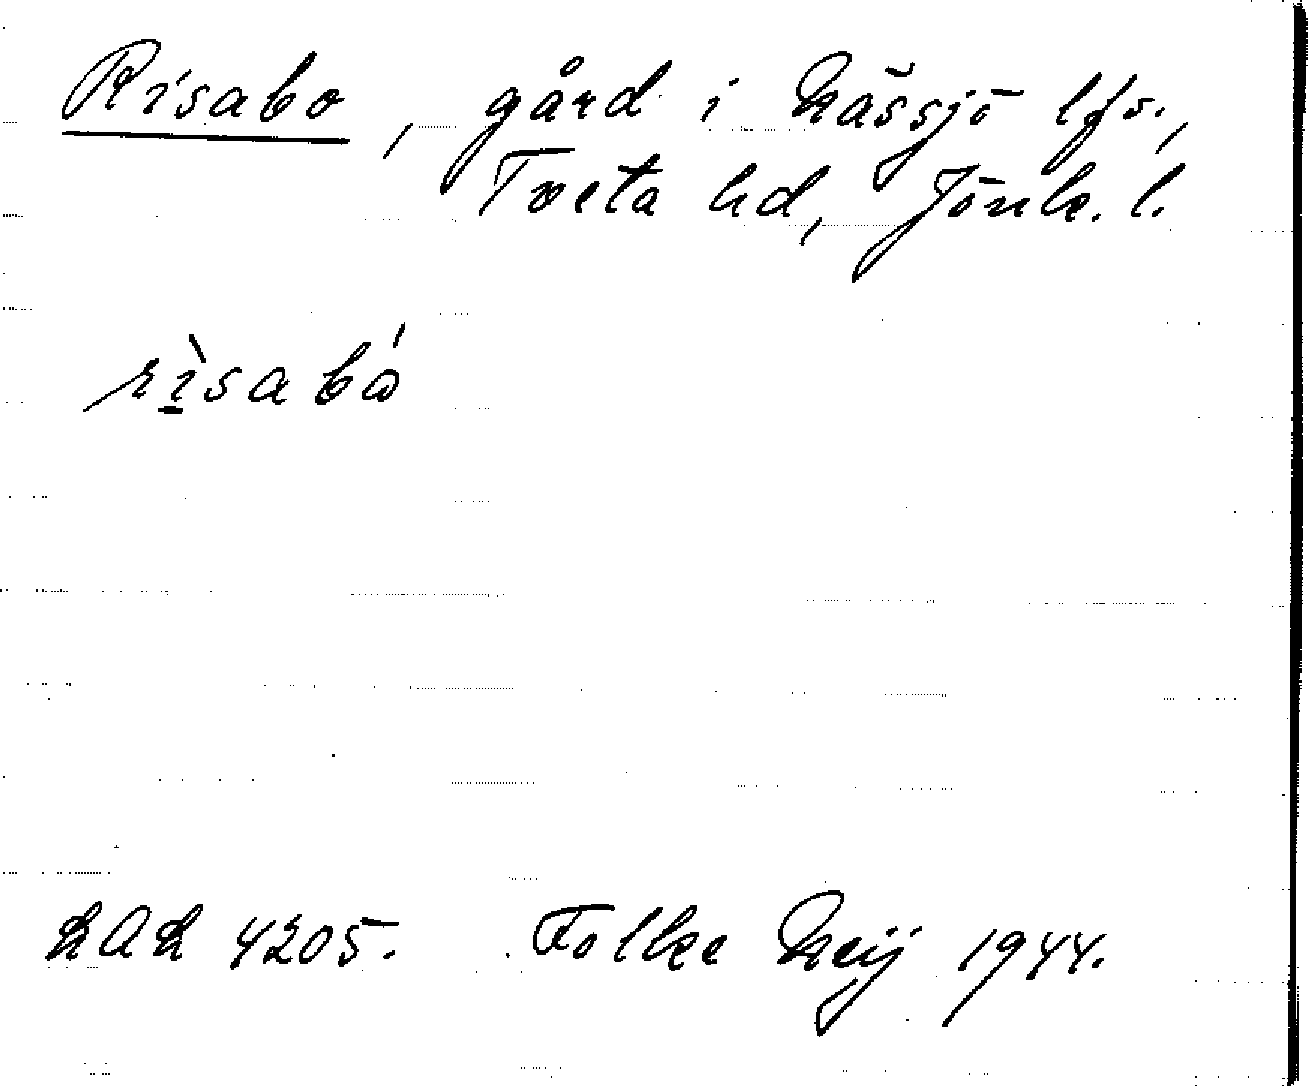 Risabo, gård i Nässjö lfs.,
Tveta hd, Jönk. l.
rì̲sabώ
LAL 4205. Folke Neij 1944.